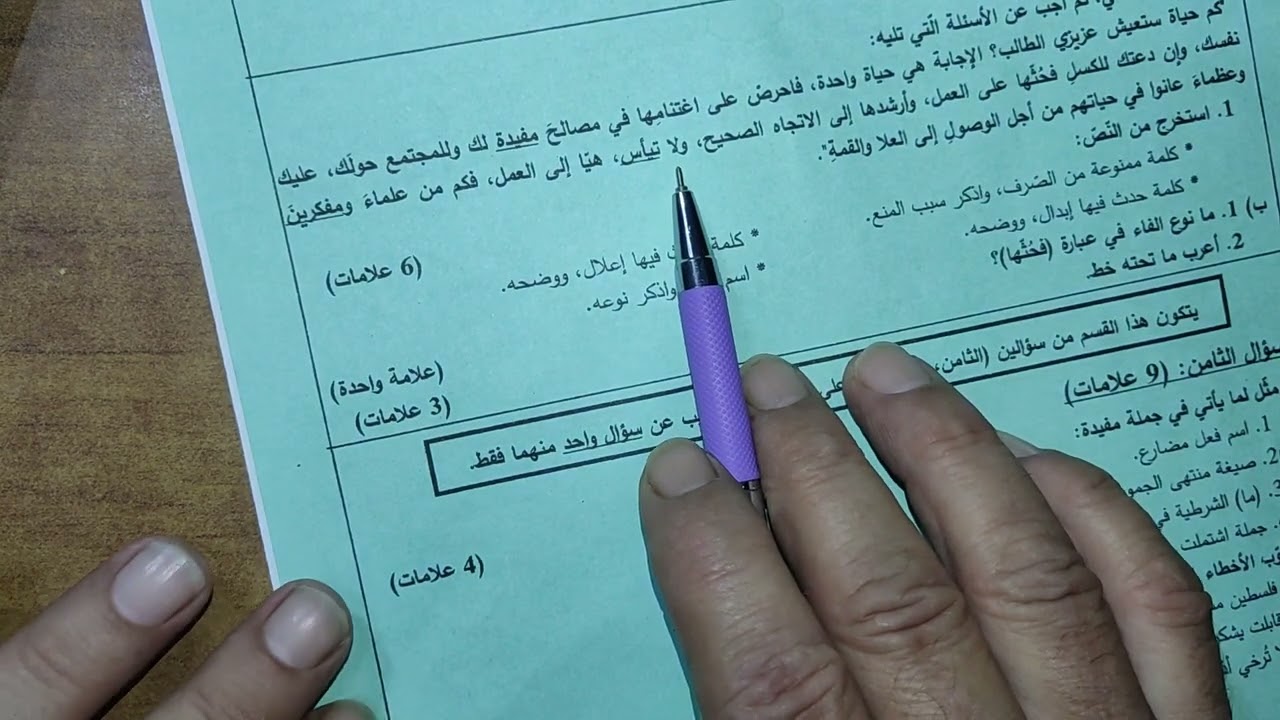 ثم أجب عن الأسئلة الّتي تليه:
كم حياة ستعيش عزيزي الطالب؟ الإجابة هي حياة واحدة، فاحرص على اغتنامِها في مصالحَ مفيدة لك وللمجتمع حولَك، عليك
نفسك، وإن دعتك للكسلِ فحُثّها على العمل، وأرشدها إلى الاتجاه الصحيح، ولا تيأس، هيّا إلى العمل، فكم من علماءَ ومفكرينَ
وعظماءَ عانوا في حياتهم من أجل الوصولِ إلى العلا والقمةِ".
1. استخرج من النّصّ:
* كلمة ممنوعة من الصّرف، واذكر سبب المنع.
* كلمة فيها إعلال، ووضحه.
(6 علامات)
* كلمة حدث فيها إبدال، ووضحه.
* اسم واذكر نوعه.
ب) 1. ما نوع الفاء في عبارة (فحُثّها)؟
(علامة واحدة)
2. أعرب ما تحته خط.
(3 علامات)
يتكون هذا القسم من سؤالين (الثامن، عن سؤال واحد منهما فقط.
سؤال الثامن: (9 علامات)
مثّل لما يأتي في جملة مفيدة:
(4 علامات)
1. اسم فعل مضارع.
2. صيغة منتهى
3. (ما) الشرطية
جملة اشتملت
الأخطاء
فلسطين